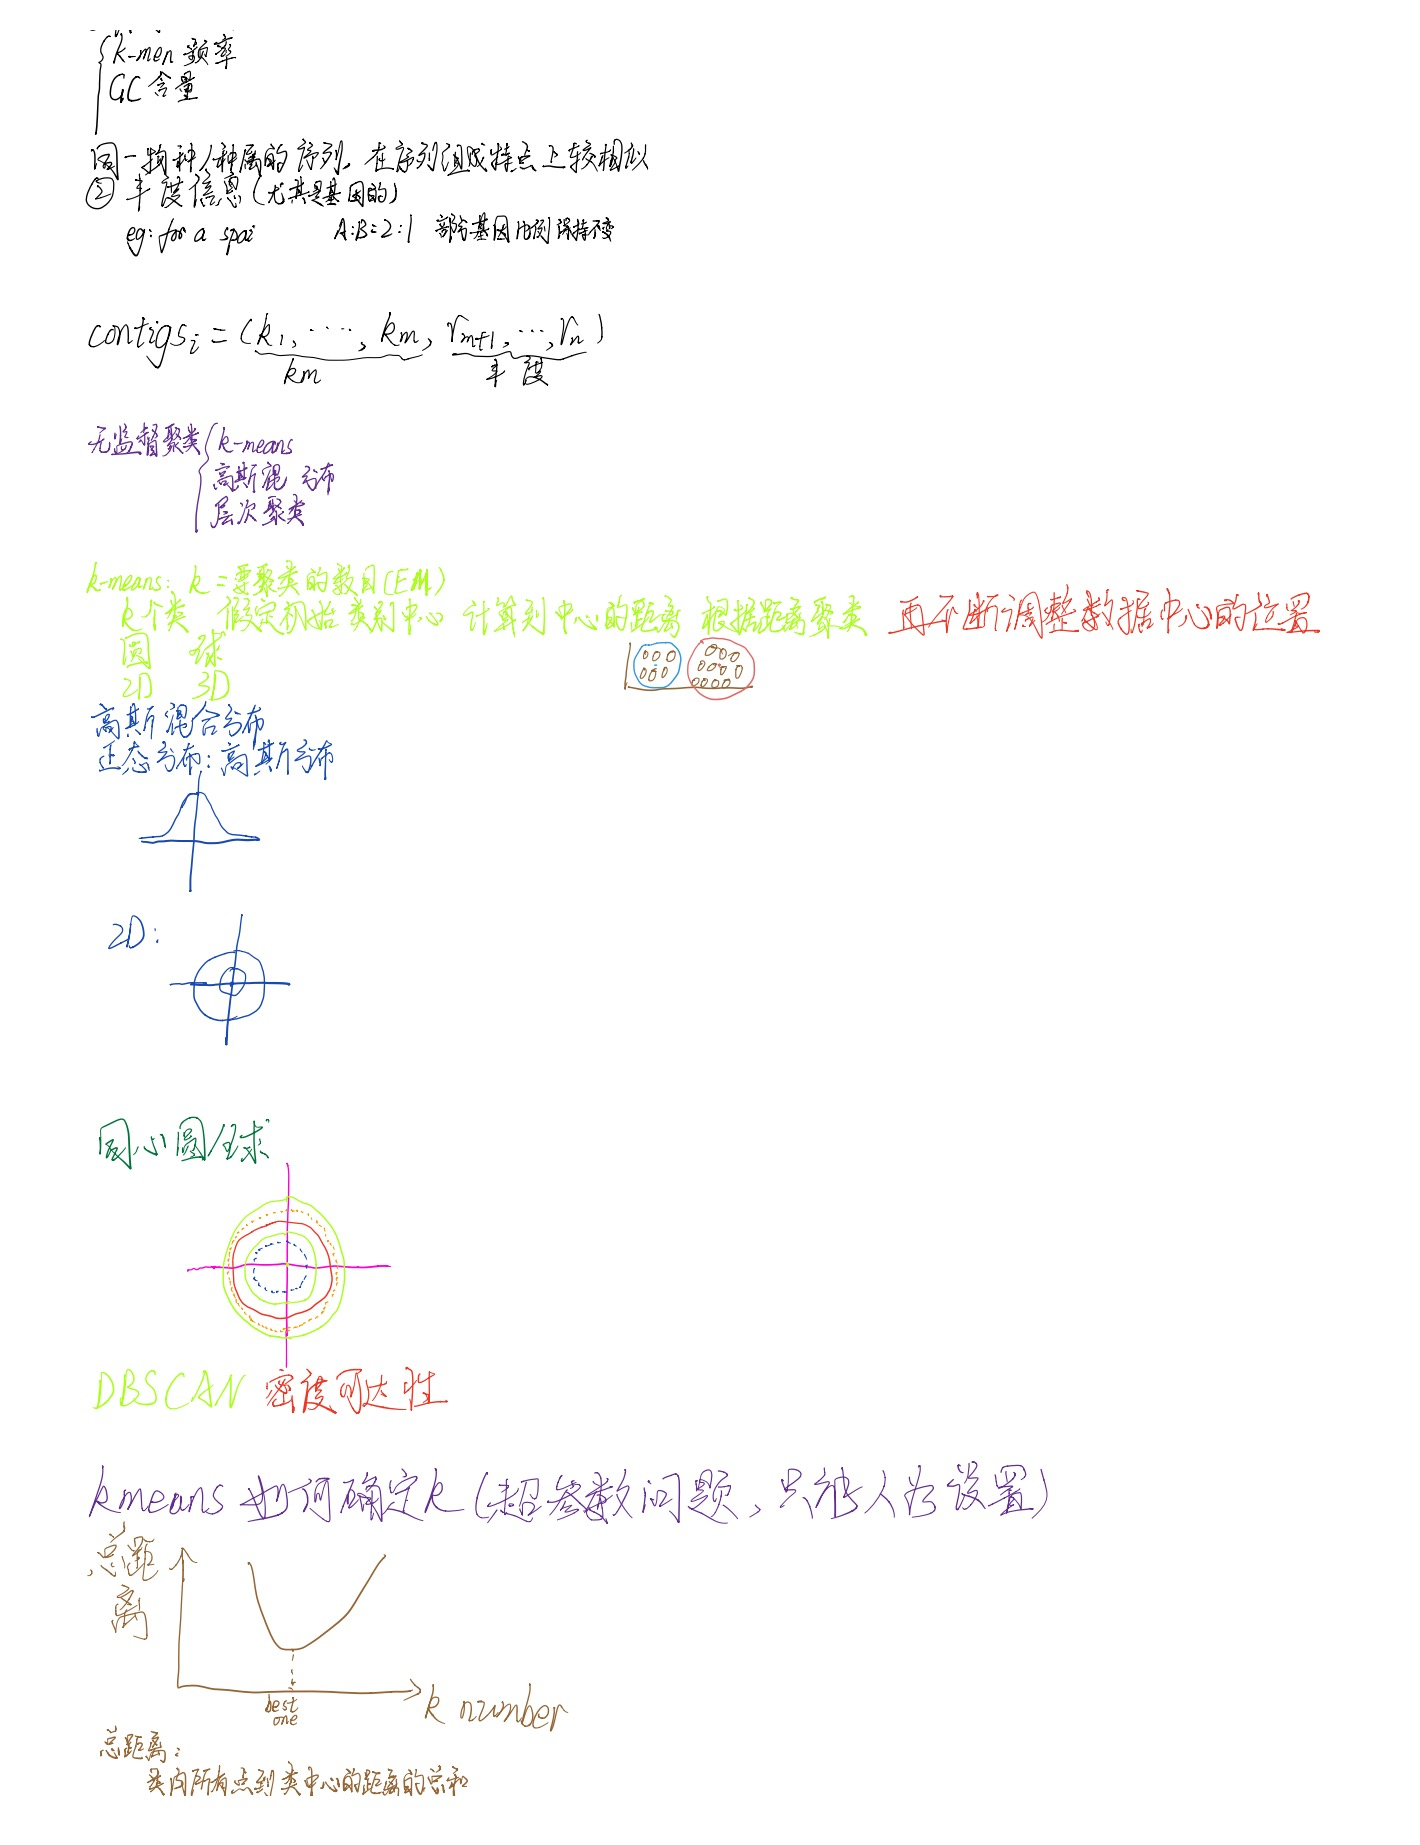 k-men 频率
GC 含量
同一物种/种属的序列，在序列组成特点上较相似
② 丰度信息(尤其是基因的)
eg: for a spai A:B=2:1 部分基因比例保持不变
contigsᵢ = (k₁, ····, km, rm+1, ···, rn)
km 丰度
无监督聚类 k-means
高斯混 分布
层次聚类
k-means: k = 要聚类的数目(EM)
k个类 假定初始类别中心 计算到中心的距离 根据距离聚类 再不断调整数据中心的位置
圆 球
2D 3D
高斯混合分布
正态分布: 高斯分布
2D:
同心圆/球
DBSCAN 密度可达性
kmeans 如何确定k (超参数问题, 只能人为设置)
总距离
best one
k number
总距离:
类内所有点到类中心的距离的总和